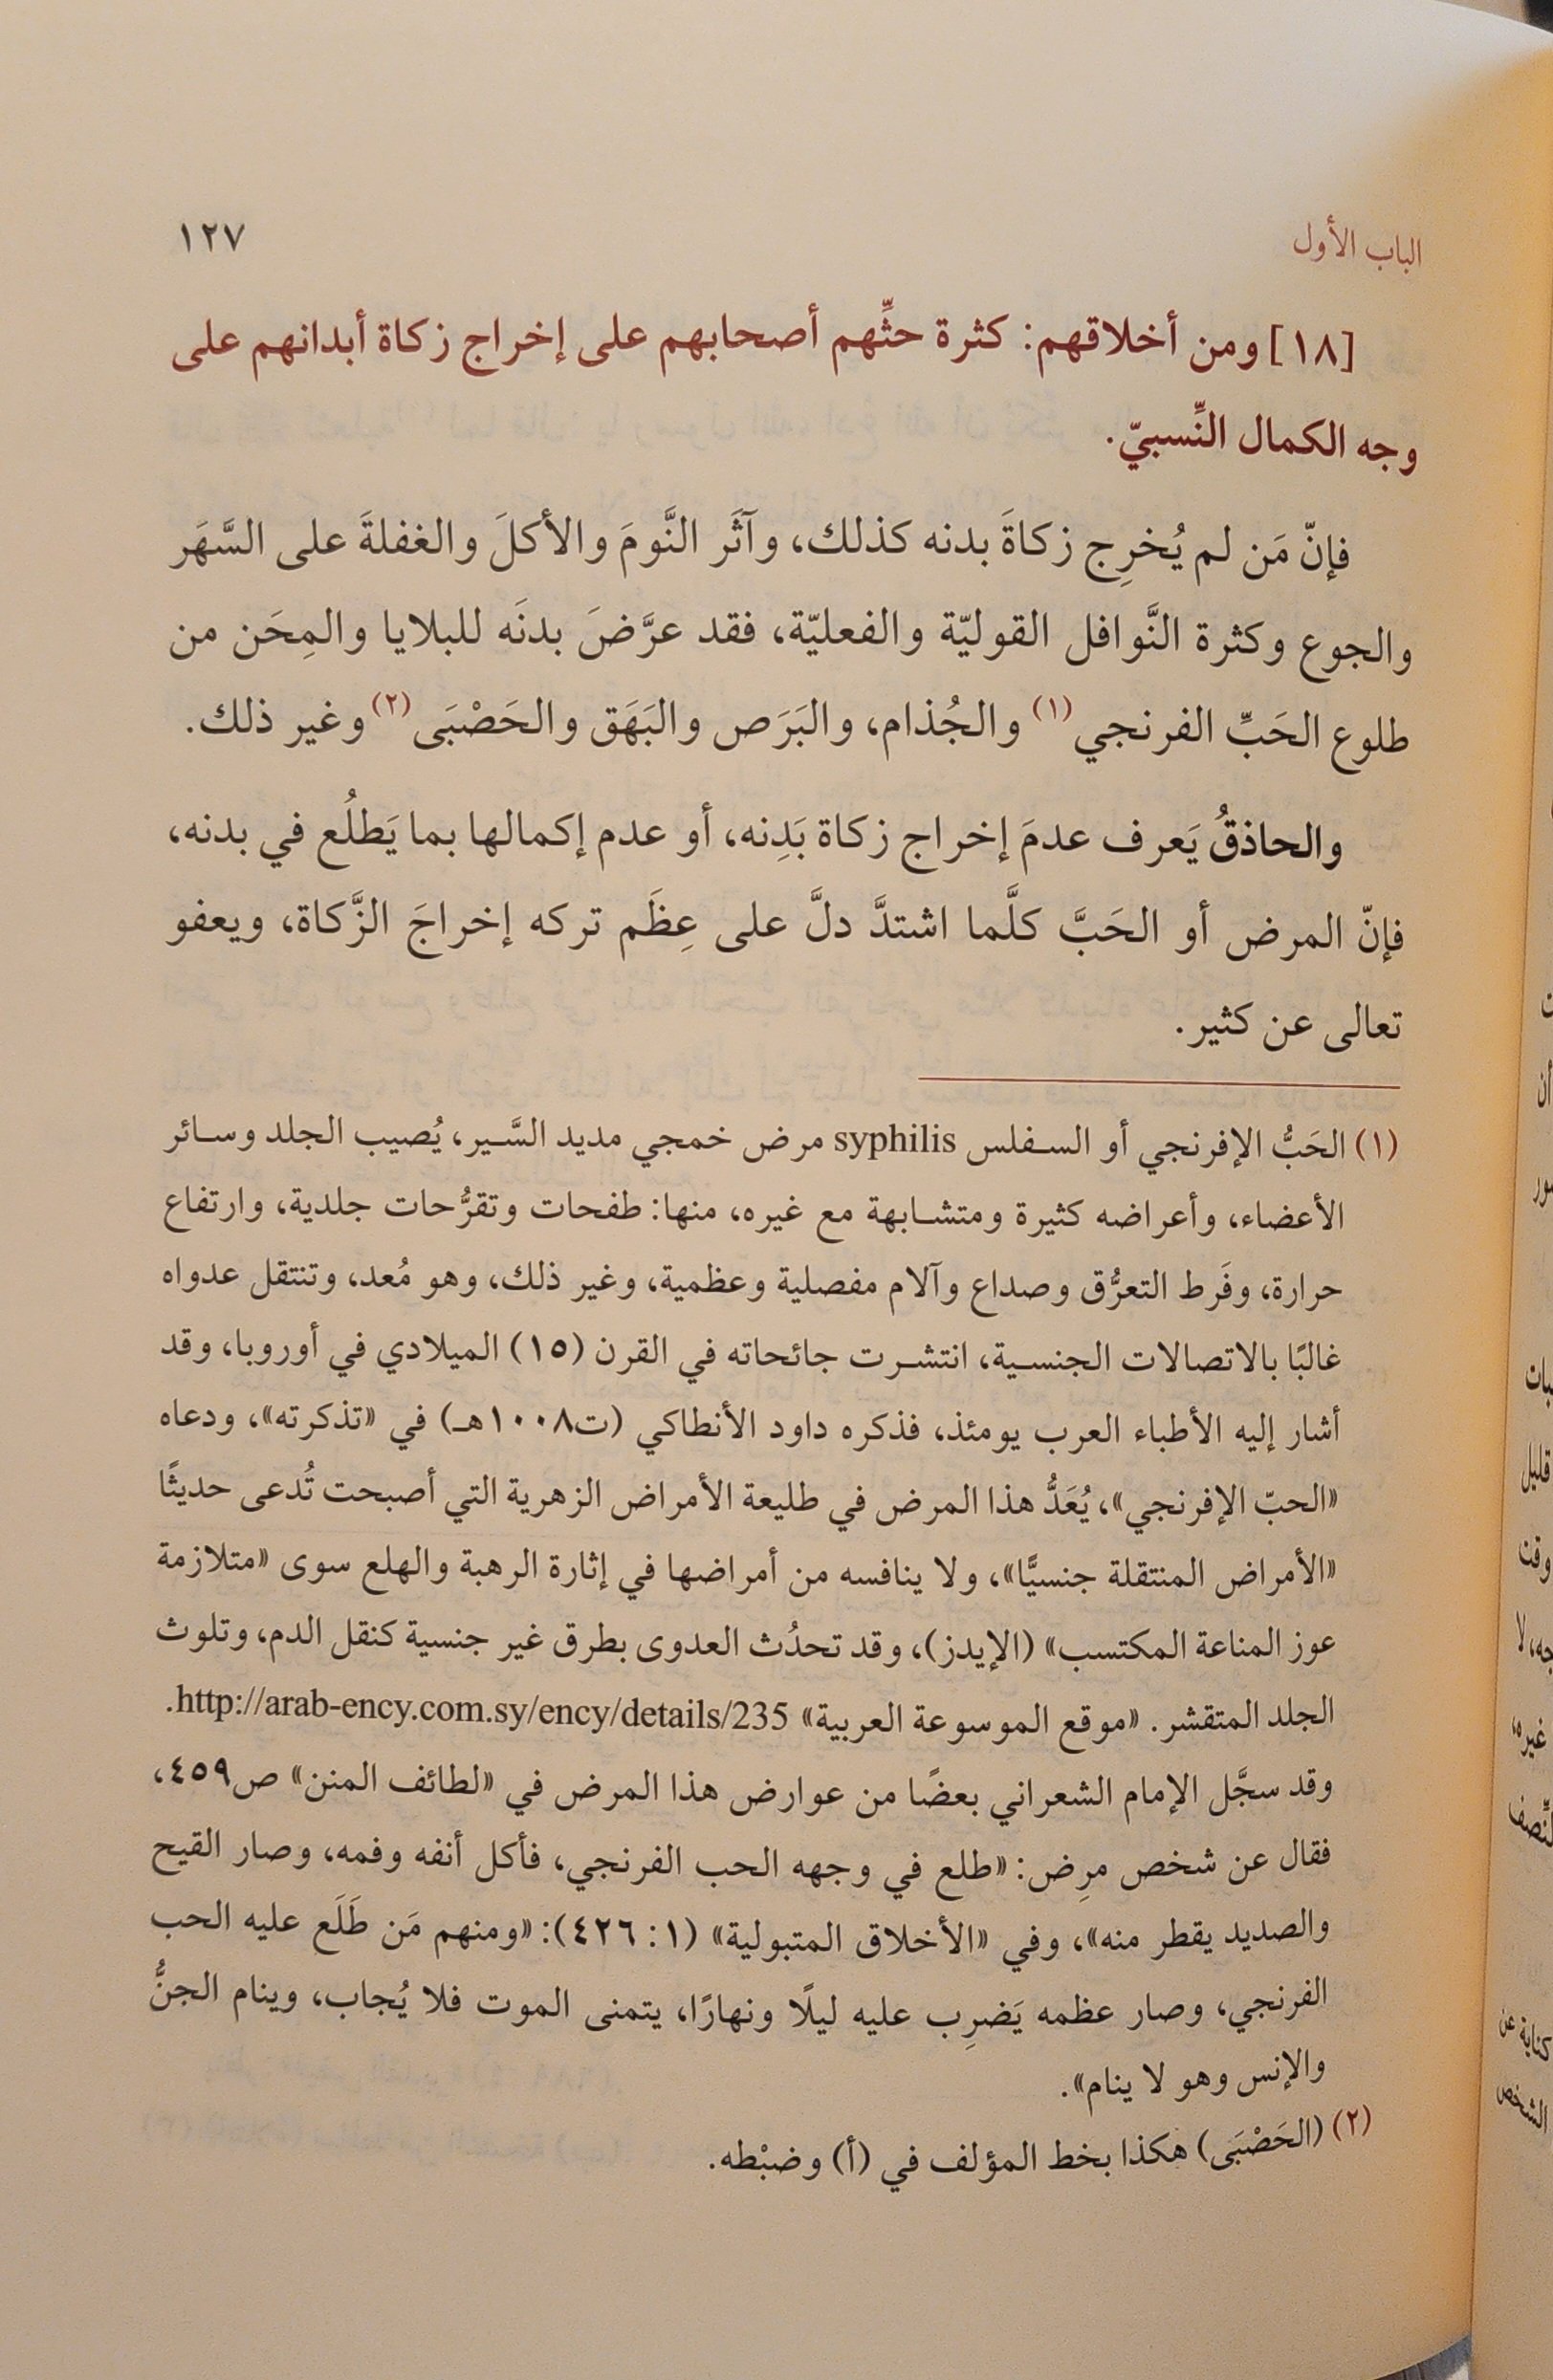 الباب الأول
١٢٧
[١٨] ومن أخلاقهم: كثرة حثِّهم أصحابهم على إخراج زكاة أبدانهم على
وجه الكمال النِّسبيّ.
فإنّ مَن لم يُخرِج زكاةَ بدنه كذلك، وآثَر النَّومَ والأكلَ والغفلةَ على السَّهَر
والجوع وكثرة النَّوافل القوليّة والفعليّة، فقد عرَّضَ بدنَه للبلايا والمِحَن من
طلوع الحَبِّ الفرنجي(١) والجُذام، والبَرَص والبَهَق والحَصْبَى(٢) وغير ذلك.
والحاذقُ يَعرف عدمَ إخراج زكاة بَدِنه، أو عدم إكمالها بما يَطلُع في بدنه،
فإنّ المرض أو الحَبَّ كلَّما اشتدَّ دلَّ على عِظَم تركه إخراجَ الزَّكاة، ويعفو
تعالى عن كثير.
(١) الحَبُّ الإفرنجي أو السفلس syphilis مرض خمجي مديد السَّير، يُصيب الجلد وسائر
الأعضاء، وأعراضه كثيرة ومتشابهة مع غيره، منها: طفحات وتقرُّحات جلدية، وارتفاع
حرارة، وفَرط التعرُّق وصداع وآلام مفصلية وعظمية، وغير ذلك، وهو مُعد، وتنتقل عدواه
غالبًا بالاتصالات الجنسية، انتشرت جائحاته في القرن (١٥) الميلادي في أوروبا، وقد
أشار إليه الأطباء العرب يومئذ، فذكره داود الأنطاكي (ت١٠٠٨هـ) في «تذكرته»، ودعاه
«الحبّ الإفرنجي»، يُعَدُّ هذا المرض في طليعة الأمراض الزهرية التي أصبحت تُدعى حديثًا
«الأمراض المنتقلة جنسيًّا»، ولا ينافسه من أمراضها في إثارة الرهبة والهلع سوى «متلازمة
عوز المناعة المكتسب» (الإيدز)، وقد تحدُث العدوى بطرق غير جنسية كنقل الدم، وتلوث
الجلد المتقشر. «موقع الموسوعة العربية» http://arab-ency.com.sy/ency/details/235.
وقد سجَّل الإمام الشعراني بعضًا من عوارض هذا المرض في «لطائف المنن» ص٤٥٩،
فقال عن شخص مرِض: «طلع في وجهه الحب الفرنجي، فأكل أنفه وفمه، وصار القيح
والصديد يقطر منه»، وفي «الأخلاق المتبولية» (١: ٤٢٦): «ومنهم مَن طَلَع عليه الحب
الفرنجي، وصار عظمه يَضرِب عليه ليلًا ونهارًا، يتمنى الموت فلا يُجاب، وينام الجنُّ
والإنس وهو لا ينام».
(٢) (الحَصْبَى) هكذا بخط المؤلف في (أ) وضبْطه.